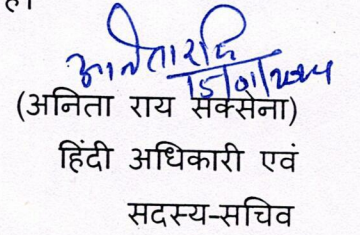 है।
15/01/2024
(अनिता राय सक्सेना)
हिंदी अधिकारी एवं
सदस्य-सचिव